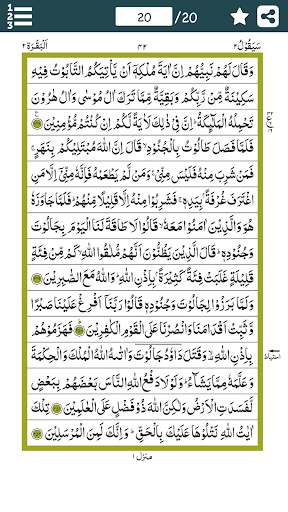 1 2 3
20 /20
سَيَقُوْلُ ٢
٤٢
اَلْبَقَرَة ٢
وَقَالَ لَهُمْ نَبِيُّهُمْ اِنَّ اٰيَةَ مُلْكِهٖٓ اَنْ يَّاْتِيَكُمُ التَّابُوْتُ فِيْهِ
سَكِيْنَةٌ مِّنْ رَّبِّكُمْ وَبَقِيَّةٌ مِّمَّا تَرَكَ اٰلُ مُوْسٰى وَاٰلُ هٰرُوْنَ
تَحْمِلُهُ الْمَلٰٓئِكَةُ ؕ اِنَّ فِيْ ذٰلِكَ لَاٰيَةً لَّكُمْ اِنْ كُنْتُمْ مُّؤْمِنِيْنَ
فَلَمَّا فَصَلَ طَالُوْتُ بِالْجُنُوْدِ ۙ قَالَ اِنَّ اللّٰهَ مُبْتَلِيْكُمْ بِنَهَرٍ ۚ
فَمَنْ شَرِبَ مِنْهُ فَلَيْسَ مِنِّيْ ۚ وَمَنْ لَّمْ يَطْعَمْهُ فَاِنَّهٗ مِنِّيْٓ اِلَّا مَنِ
اغْتَرَفَ غُرْفَةًۢ بِيَدِهٖ ۚ فَشَرِبُوْا مِنْهُ اِلَّا قَلِيْلًا مِّنْهُمْ ؕ فَلَمَّا جَاوَزَهٗ
هُوَ وَالَّذِيْنَ اٰمَنُوْا مَعَهٗ ۙ قَالُوْا لَا طَاقَةَ لَنَا الْيَوْمَ بِجَالُوْتَ
وَجُنُوْدِهٖ ؕ قَالَ الَّذِيْنَ يَظُنُّوْنَ اَنَّهُمْ مُّلٰقُوا اللّٰهِ ۙ كَمْ مِّنْ فِئَةٍ
قَلِيْلَةٍ غَلَبَتْ فِئَةً كَثِيْرَةًۢ بِاِذْنِ اللّٰهِ ؕ وَاللّٰهُ مَعَ الصّٰبِرِيْنَ
وَلَمَّا بَرَزُوْا لِجَالُوْتَ وَجُنُوْدِهٖ قَالُوْا رَبَّنَآ اَفْرِغْ عَلَيْنَا صَبْرًا
وَّثَبِّتْ اَقْدَامَنَا وَانْصُرْنَا عَلَى الْقَوْمِ الْكٰفِرِيْنَ ؕ فَهَزَمُوْهُمْ
بِاِذْنِ اللّٰهِ ۙ وَقَتَلَ دَاوٗدُ جَالُوْتَ وَاٰتٰىهُ اللّٰهُ الْمُلْكَ وَالْحِكْمَةَ
وَعَلَّمَهٗ مِمَّا يَشَآءُ ؕ وَلَوْلَا دَفْعُ اللّٰهِ النَّاسَ بَعْضَهُمْ بِبَعْضٍ
لَّفَسَدَتِ الْاَرْضُ وَلٰكِنَّ اللّٰهَ ذُوْ فَضْلٍ عَلَى الْعٰلَمِيْنَ تِلْكَ
اٰيٰتُ اللّٰهِ نَتْلُوْهَا عَلَيْكَ بِالْحَقِّ ؕ وَاِنَّكَ لَمِنَ الْمُرْسَلِيْنَ
منزل ١